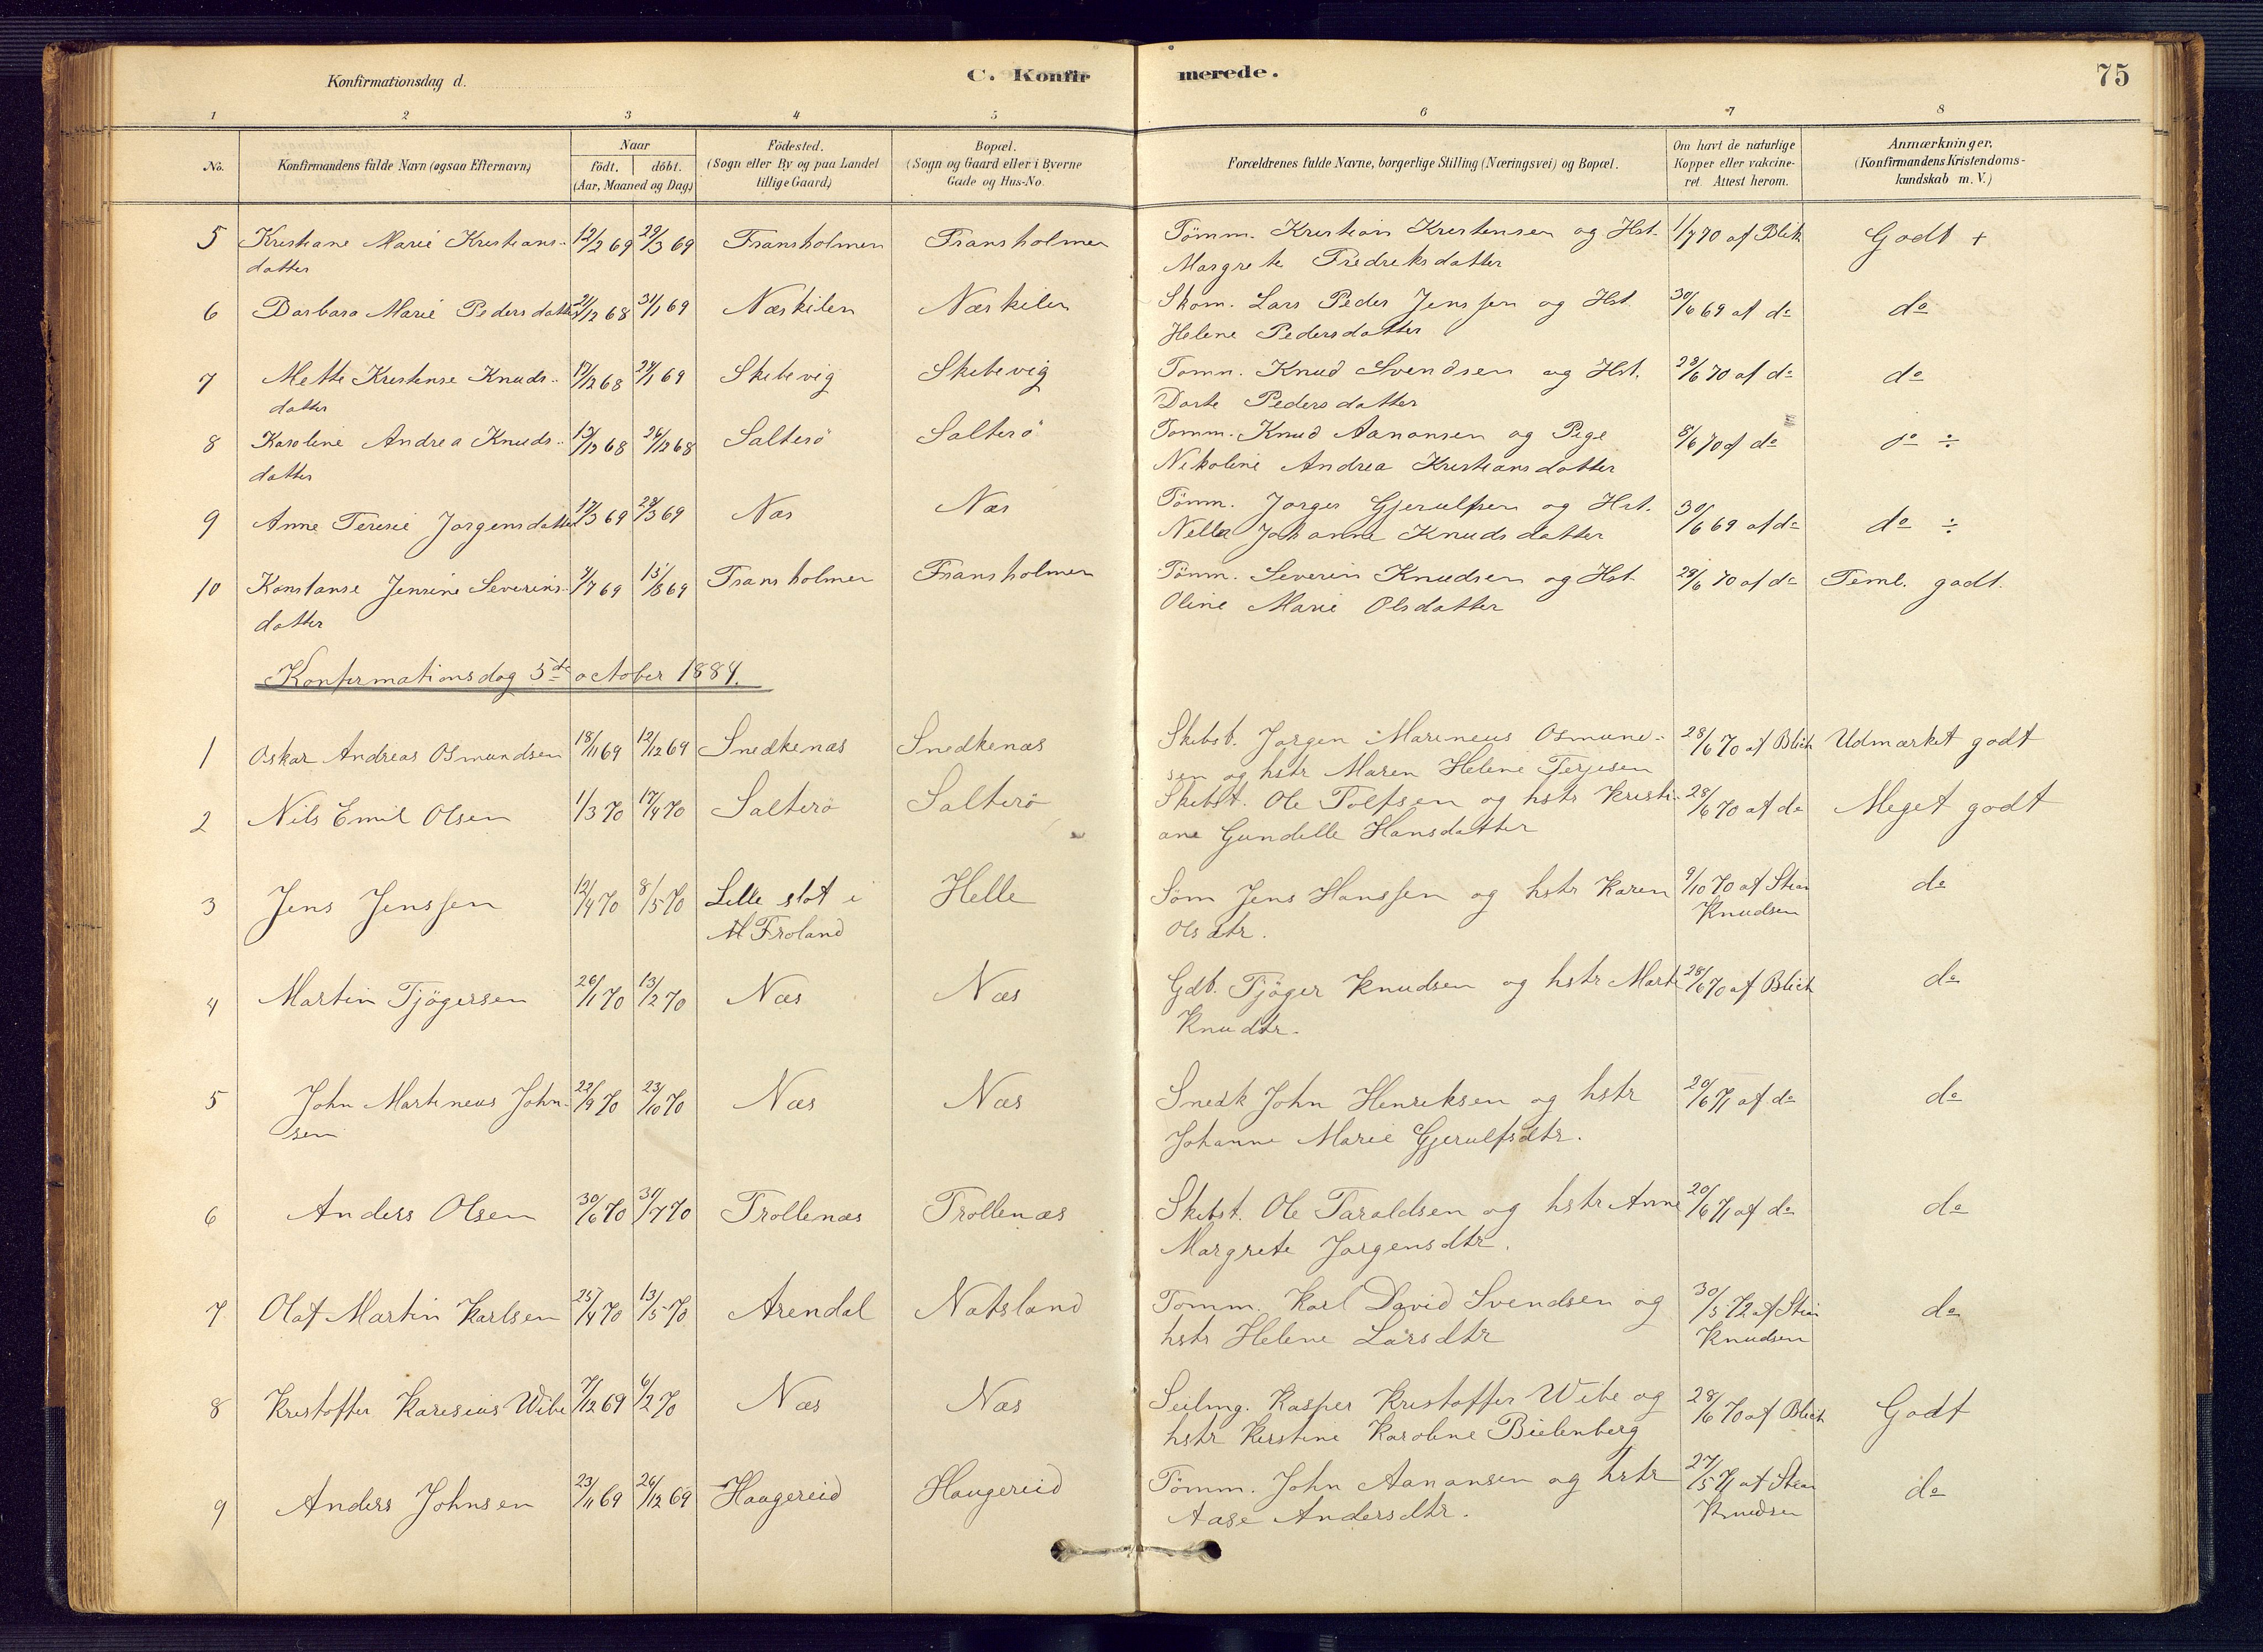 Konfirmationsdag d.
C. Konfir
merede.
75
1 2 3 4 5 6 7 8
No.
Konfirmandens fulde Navn (ogsaa Efternavn)
Naar
födt. döbt.
(Aar, Maaned og Dag)
Födested.
(Sogn eller By og paa Landet tillige Gaard)
Bopæl.
(Sogn og Gaard eller i Byerne Gade og Hus-No.
Forældrenes fulde Navne, borgerlige Stilling (Næringsvei) og Bopæl.
Om havt de naturlige Kopper eller vakcineret. Attest herom.
Anmærkninger.
(Konfirmandens Kristendomskundskab m. V.)
5 Kristiane Marie Kristians- 12/2 69 29/3 69 Fransholmen Fransholmen Tömm. Kristian Kristensen og Hst. 1/7 70 af Blich Godt +
datter Margrete Fredreksdatter
6 Barbara Marie Pedersdatter 21/12 68 31/1 69 Næskilen Næskilen Skom. Lars Peder Jenssen og Hst. 30/6 69 af do do
Helene Pedersdatter
7 Mette Kristense Knuds- 12/68 24/1 69 Skibevig Skibevig Tomm. Knud Svendsen og Hst. 28/6 70 af do do
datter Dorte Pedersdatter
8 Karoline Andrea Knuds- 12/68 26/12 68 Salterö Salterö Tomm. Knud Aanonsen og Pige 8/6 70 af do do ÷
datter Nikoline Andrea Kristiansdatter
9 Anne Teresie Jorgensdatter 17/3 69 28/3 69 Næs Næs Tömm. Jorgen Gjerulfsen og Hst. 30/6 69 af do do ÷
Nella Johanne Knudsdatter
10 Konstanse Jensine Severins- 4/7 69 15/8 69 Fransholmen Fransholmen Tömm. Severin Knudsen og Hst. 28/6 70 af do Teml. godt.
datter Oline Marie Olsdatter
Konfirmationsdag 5de october 1884.
1 Oskar Andreas Osmundsen 18/11 69 12/12 69 Snedkenæs Snedkenæs Skibsb. Jorgen Marineus Osmund- 28/6 70 af Blich Udmærket godt
sen og hstr Maren Helene Terjesen
2 Nils Emil Olsen 1/3 70 17/4 70 Salterö Salterö Skibst. Ole Tolfsen og hstr Kristi- 28/6 70 af do Meget godt
ane Gundelle Hansdatter
3 Jens Jenssen 12/4 70 8/5 70 Lille slot i Helle Söm Jens Hanssen og hstr Karen 9/10 70 af Stian do
Froland Olsdtr. Knudsen
4 Martin Tjögersen 26/1 70 13/2 70 Næs Næs Gdb. Tjöger Knudsen og hstr Marte 28/6 70 af Blich do
Knudtr.
5 John Martineus John- 22/9 70 23/10 70 Næs Næs Snedk John Henriksen og hstr 20/6 71 af do do
sen Johanne Marie Gjerulfsdtr.
6 Anders Olsen 30/6 70 31/7 70 Trollenæs Trollenæs Skibst. Ole Taraldsen og hstr Anne 20/6 71 af do do
Margrete Jorgensdtr.
7 Olaf Martin Karlsen 25/4 70 13/5 70 Arendal Natsland Tomm. Karl David Svendsen og 30/5 72 af Stian do
hstr Helene Larsdtr Knudsen
8 Kristoffer Karisius Wibe 7/12 69 6/2 70 Næs Næs Seilmg. Kasper Kristoffer Wibe og 28/6 70 af Blich Godt
hstr Kirstine Karoline Bielenberg
9 Anders Johnsen 23/11 69 26/12 69 Haugereid Haugereid Tömm. John Aanonsen og hstr 27/5 71 af Stian do
Aase Andersdtr. Knudsen